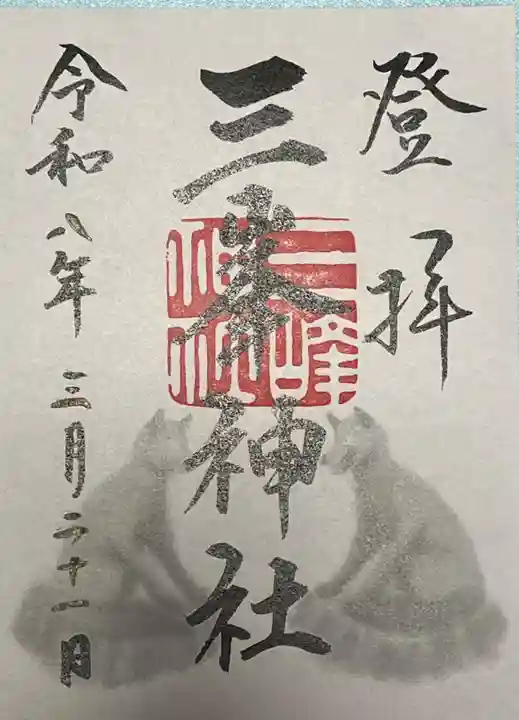 登拝
三峯神社
三峰神社
令和八年 三月二十一日